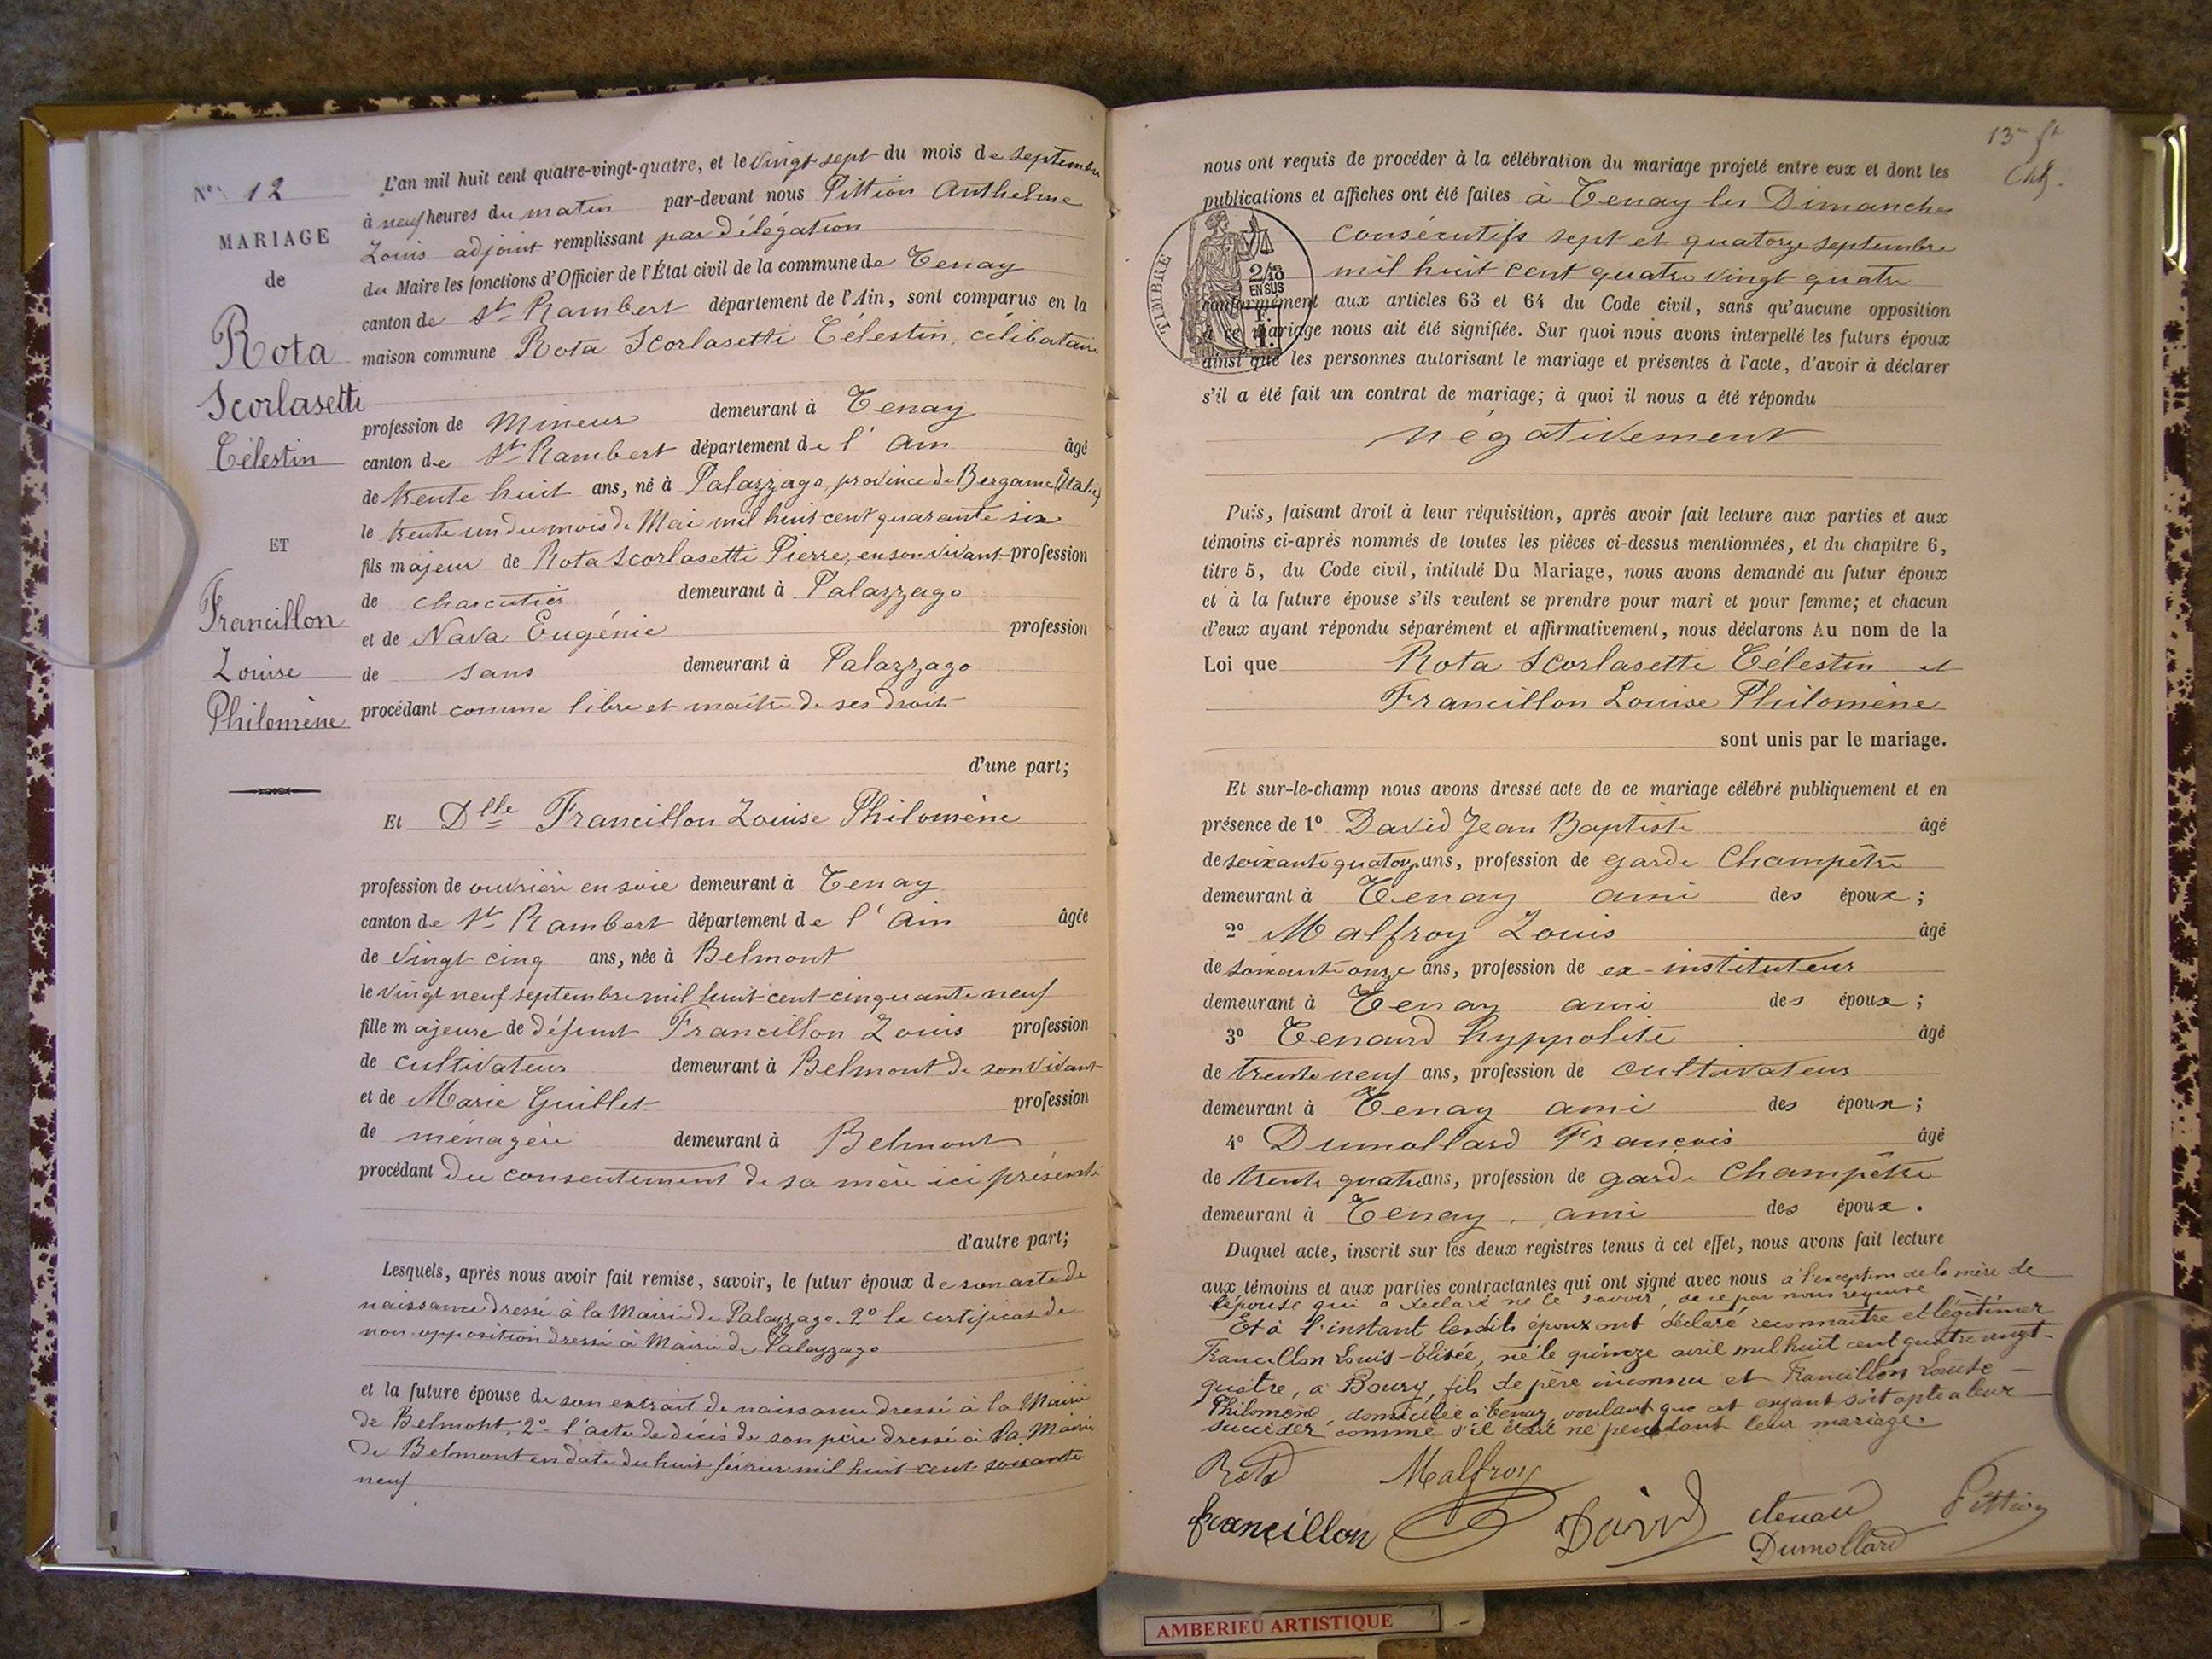 Nº 12
MARIAGE
de
Rota
Scorlasetti
Célestin
ET
Francillon
Louise
Philomène
L'an mil huit cent quatre-vingt-quatre, et le vingt sept du mois de septembre
à neuf heures du matin par-devant nous Pittion Anthelme
Louis adjoint remplissant par délégation
du Maire les fonctions d'Officier de l'État civil de la commune de Tenay
canton de St Rambert département de l'Ain, sont comparus en la
maison commune Rota Scorlasetti Célestin, célibataire
profession de Mineur demeurant à Tenay
canton de St Rambert département de l'Ain âgé
de trente huit ans, né à Palazzago, province de Bergame (Italie)
le trente un du mois de Mai mil huit cent quarante six
fils majeur de Rota Scorlasetti Pierre, en son vivant profession
de charcutier demeurant à Palazzago
et de Nava Eugénie profession
de sans demeurant à Palazzago
procédant comme libre et maître de ses droits
d'une part;
Et Dlle Francillon Louise Philomène
profession de ouvrière en soie demeurant à Tenay
canton de St Rambert département de l'Ain âgée
de vingt cinq ans, née à Belmont
le vingt neuf septembre mil huit cent cinquante neuf
fille majeure de défunt Francillon Louis profession
de cultivateur demeurant à Belmont de son vivant
et de Marie Guillet profession
de ménagère demeurant à Belmont
procédant du consentement de sa mère ici présente
d'autre part;
Lesquels, après nous avoir fait remise, savoir, le futur époux de son acte de
naissance dressé à la Mairie de Palazzago. 2º le certificat de
non-opposition dressé à Mairie de Palazzago
et la future épouse de son extrait de naissance dressé à la Mairie
de Belmont, 2º l'acte de décès de son père dressé à la Mairie
de Belmont en date du huit février mil huit cent soixante
neuf
13e ft
nous ont requis de procéder à la célébration du mariage projeté entre eux et dont les
publications et affiches ont été faites à Tenay les Dimanches
consécutifs sept et quatorze septembre
mil huit cent quatre vingt quatre
TIMBRE
2/10
EN SUS
conformément aux articles 63 et 64 du Code civil, sans qu'aucune opposition
à ce mariage nous ait été signifiée. Sur quoi nous avons interpellé les futurs époux
ainsi que les personnes autorisant le mariage et présentes à l'acte, d'avoir à déclarer
s'il a été fait un contrat de mariage; à quoi il nous a été répondu
négativement
Puis, faisant droit à leur réquisition, après avoir fait lecture aux parties et aux
témoins ci-après nommés de toutes les pièces ci-dessus mentionnées, et du chapitre 6,
titre 5, du Code civil, intitulé Du Mariage, nous avons demandé au futur époux
et à la future épouse s'ils veulent se prendre pour mari et pour femme; et chacun
d'eux ayant répondu séparément et affirmativement, nous déclarons Au nom de la
Loi que Rota Scorlasetti Célestin et
Francillon Louise Philomène
sont unis par le mariage.
Et sur-le-champ nous avons dressé acte de ce mariage célébré publiquement et en
présence de 1º David Jean Baptiste âgé
de soixante quatorze ans, profession de garde Champêtre
demeurant à Tenay ami des époux;
2º Malfroy Louis âgé
de soixante onze ans, profession de ex-instituteur
demeurant à Tenay ami des époux;
3º Tenand hyppolite âgé
de trente neuf ans, profession de cultivateur
demeurant à Tenay ami des époux;
4º Dumollard François âgé
de trente quatre ans, profession de garde Champêtre
demeurant à Tenay, ami des époux.
Duquel acte, inscrit sur les deux registres tenus à cet effet, nous avons fait lecture
aux témoins et aux parties contractantes qui ont signé avec nous à l'exception de la mère de
l'épouse qui a déclaré ne le savoir, de ce par nous requise
Et à l'instant lesdits époux ont déclaré reconnaître et légitimer
Francillon Louis-Elisée, né le quinze avril mil huit cent quatre vingt-
quatre, à Bourg, fils de père inconnu et Francillon Louise
Philomène, domiciliée à Tenay, voulant que cet enfant soit apte a leur
succéder comme s'il était né pendant leur mariage.
Rota Malfroy
francillon David tenand Pittion
Dumollard
AMBERIEU ARTISTIQUE